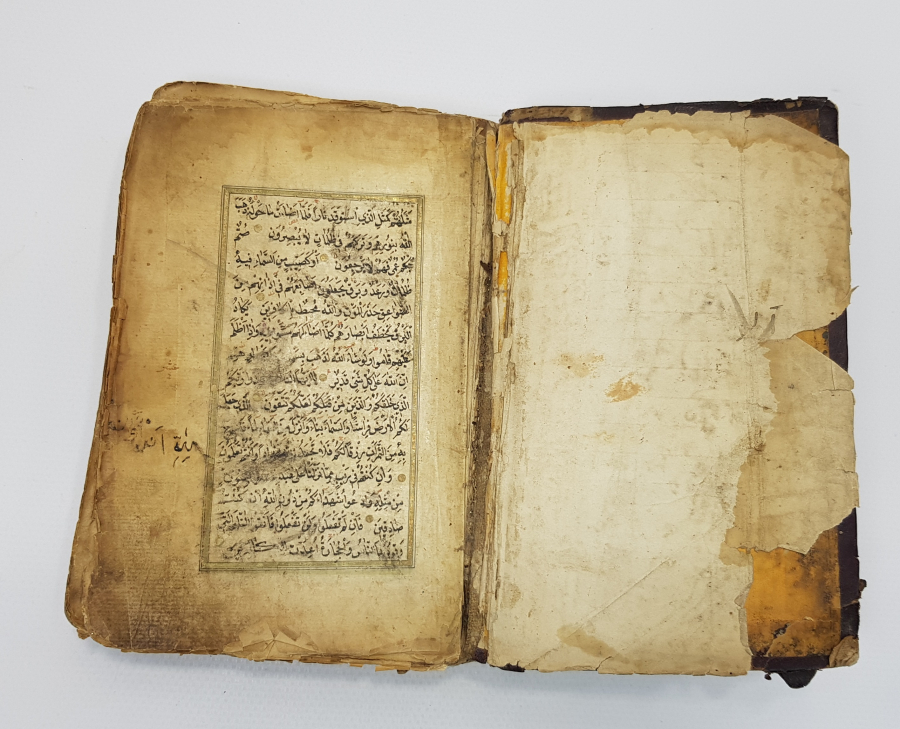 مثلهم كمثل الذي استوقد نارا فلما اضاءت ما حوله ذهب
الله بنورهم وتركهم في ظلمات لا يبصرون صم
بكم عمي فهم لا يرجعون او كصيب من السماء فيه
ظلمات ورعد وبرق يجعلون اصابعهم في اذانهم من
الصواعق حذر الموت والله محيط بالكافرين يكاد
البرق يخطف ابصارهم كلما اضاء لهم مشوا فيه واذا اظلم
عليهم قاموا ولو شاء الله لذهب
ان الله على كل شئ قدير يا ايها الناس ربكم
الذي خلقكم والذين من قبلكم لعلكم تتقون الذي جعل
لكم الارض فراشا والسماء بناء وانزل من
به من الثمرات رزقا لكم فلا تجعلوا وانتم تعلمون
وان كنتم في ريب مما نزلنا على عبدنا
من مثله وادعوا شهداءكم من دون الله ان كنتم
صادقين فان لم تفعلوا ولن تفعلوا فاتقوا النار التي
وقودها الناس والحجارة اعدت للكافرين